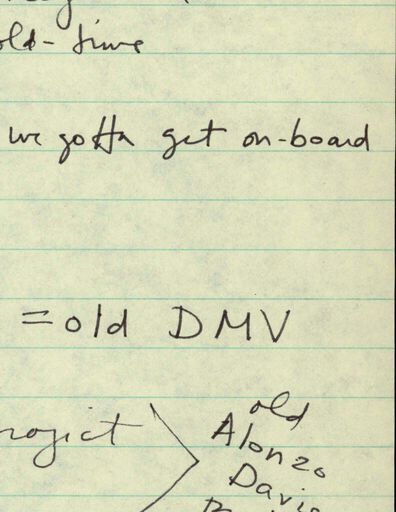 old-time
we gotta get on-board
=old DMV
project
old
Alonzo
Davis